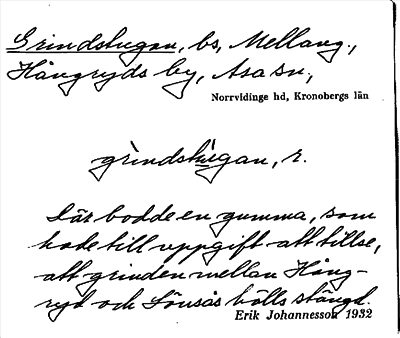 Grindstugan, bs, Mellang.,
Hångryds by, Asa sn,
Norrvidinge hd, Kronobergs län
grìndstùgan, r.
Där bodde en gumma, som
hade till uppgift att tillse,
att grinden mellan Hång-
ryd och Lönsås hölls stängd.
Erik Johannesson 1932